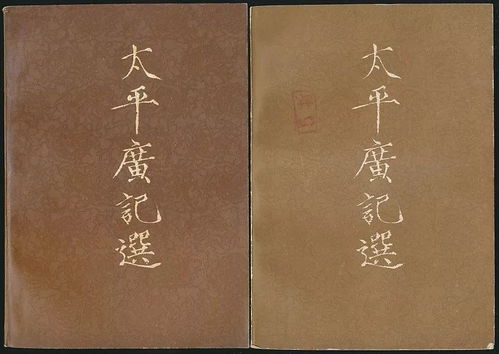 太平廣記選
太平廣記選